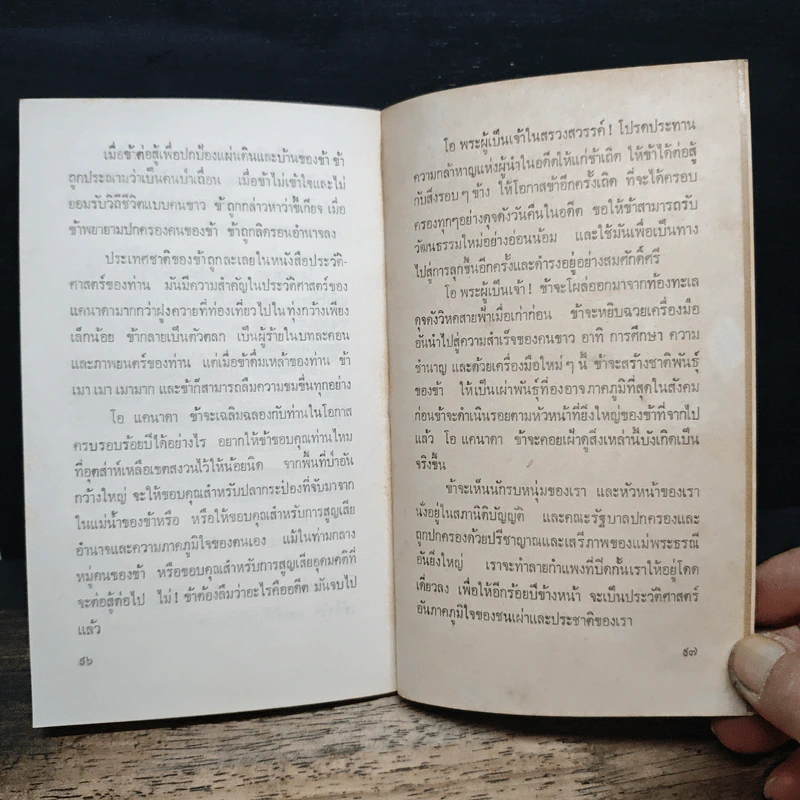 เมื่อข้าต่อสู้เพื่อปกป้องแผ่นดินและบ้านของข้า ข้า
ถูกประณามว่าเป็นคนป่าเถื่อน เมื่อข้าไม่เข้าใจและไม่
ยอมรับวิถีชีวิตแบบคนขาว ข้าถูกกล่าวหาว่าขี้เกียจ เมื่อ
ข้าพยายามปกครองคนของข้า ข้าก็ถูกลิดรอนอำนาจลง
ประเทศชาติของข้าถูกละเลยในหนังสือประวัติ-
ศาสตร์ของท่าน มันมีความสำคัญในประวัติศาสตร์ของ
แคนาดามากกว่าฝูงควายที่ท่องเที่ยวไปในทุ่งกว้างเพียง
เล็กน้อย ข้ากลายเป็นตัวตลก เป็นผู้ร้ายในบทละคอน
และภาพยนตร์ของท่าน แต่เมื่อข้าดื่มเหล้าของท่าน ข้า
เมา เมา เมามาก และข้าก็สามารถลืมความขมขื่นทุกอย่าง
โอ แคนาดา ข้าจะเฉลิมฉลองกับท่านในโอกาส
ครบรอบร้อยปีได้อย่างไร อยากให้ข้าขอบคุณท่านไหม
ที่อุตส่าห์เหลือเขตสงวนไว้ให้น้อยนิด จากพื้นที่ป่าอัน
กว้างใหญ่ จะให้ขอบคุณสำหรับปลากระป๋องที่จับมาจาก
ในแม่น้ำของข้าหรือ หรือให้ขอบคุณสำหรับการสูญเสีย
อำนาจและความภาคภูมิใจของตนเอง แม้ในท่ามกลาง
หมู่คนของข้า หรือขอบคุณสำหรับการสูญเสียอุดมคติที่
จะต่อสู้ต่อไป ไม่! ข้าต้องลืมว่าอะไรคืออดีต มันจบไป
แล้ว
๙๖
โอ พระผู้เป็นเจ้าในสรวงสวรรค์! โปรดประทาน
ความกล้าหาญแห่งผู้นำในอดีตให้แก่ข้าเถิด ให้ข้าได้ต่อสู้
กับสิ่งรอบๆ ข้าง ให้โอกาสข้าอีกครั้งเถิด ที่จะได้ครอบ
ครองทุกๆอย่างดุจดังวันคืนในอดีต ขอให้ข้าสามารถรับ
วัฒนธรรมใหม่อย่างอ่อนน้อม และใช้มันเพื่อเป็นทาง
ไปสู่การลุกขึ้นอีกครั้งและดำรงอยู่อย่างสมศักดิ์ศรี
โอ พระผู้เป็นเจ้า! ข้าจะโผล่ออกมาจากท้องทะเล
ดุจดังวิหคสายฟ้าเมื่อเก่าก่อน ข้าจะหยิบฉวยเครื่องมือ
อันนำไปสู่ความสำเร็จของคนขาว อาทิ การศึกษา ความ
ชำนาญ และด้วยเครื่องมือใหม่ๆ นี้ ข้าจะสร้างชาติพันธุ์
ของข้า ให้เป็นเผ่าพันธุ์ที่องอาจภาคภูมิที่สุดในสังคม
ก่อนข้าจะดำเนินรอยตามหัวหน้าที่ยิ่งใหญ่ของข้าที่จากไป
แล้ว โอ แคนาดา ข้าจะคอยเฝ้าดูสิ่งเหล่านี้บังเกิดเป็น
จริงขึ้น
ข้าจะเห็นนักรบหนุ่มของเรา และหัวหน้าของเรา
นั่งอยู่ในสภานิติบัญญัติ และคณะรัฐบาลปกครองและ
ถูกปกครองด้วยปรีชาญาณและเสรีภาพของแม่พระธรณี
อันยิ่งใหญ่ เราจะทำลายกำแพงที่ปิดกั้นเราให้อยู่โดด
เดี่ยวลง เพื่อให้อีกร้อยปีข้างหน้า จะเป็นประวัติศาสตร์
อันภาคภูมิใจของชนเผ่าและประชาติของเรา
๙๗